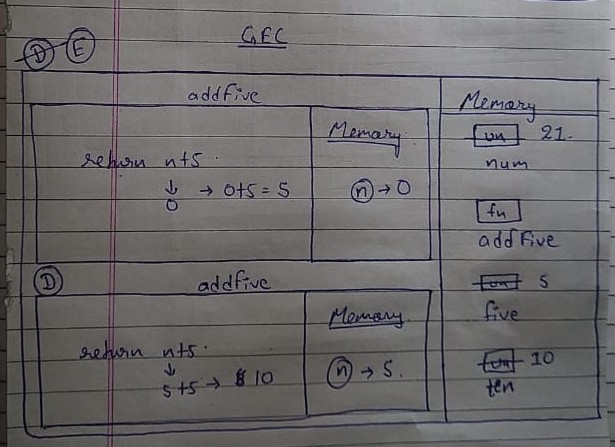 GEC
D E
addfive
return n+5.
↓
0 → 0+5 = 5
Memory
n → 0
D
addfive
return n+5.
↓
5+5 → 10
Memory
n → 5.
Memory
un 21.
num
fn
addFive
un 5
five
un 10
ten